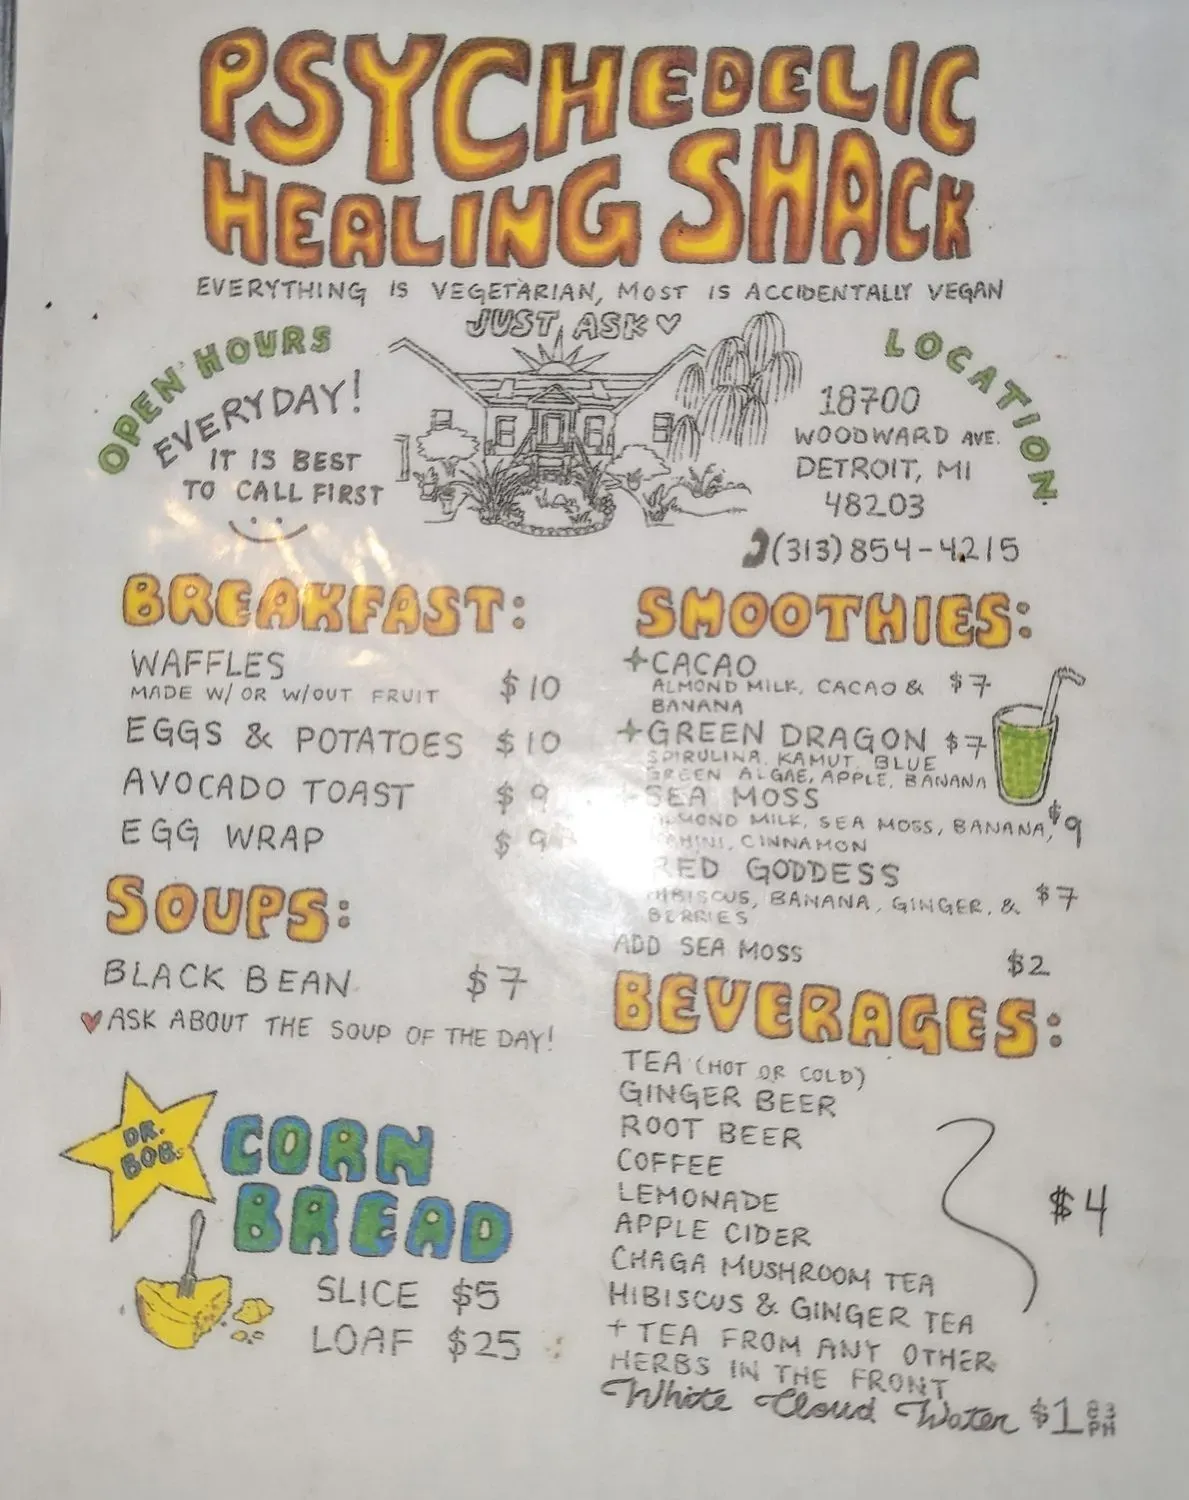 PSYCHEDELIC
HEALING SHACK
EVERYTHING IS VEGETARIAN, MOST IS ACCIDENTALLY VEGAN
JUST ASK
OPEN HOURS
EVERYDAY!
IT IS BEST
TO CALL FIRST
LOCATION
18700
WOODWARD AVE.
DETROIT, MI
48203
(313) 854-4215
BREAKFAST:
WAFFLES
MADE W/ OR W/OUT FRUIT $10
EGGS & POTATOES $10
AVOCADO TOAST $9
EGG WRAP $9
SOUPS:
BLACK BEAN $7
ASK ABOUT THE SOUP OF THE DAY!
DR. BOB'S
CORN
BREAD
SLICE $5
LOAF $25
SMOOTHIES:
+CACAO
ALMOND MILK, CACAO & $7
BANANA
+GREEN DRAGON $7
SPIRULINA, KAMUT, BLUE
GREEN ALGAE, APPLE, BANANA
SEA MOSS
ALMOND MILK, SEA MOSS, BANANA, $9
TAHINI, CINNAMON
RED GODDESS
HIBISCUS, BANANA, GINGER, & $7
BERRIES
ADD SEA MOSS $2
BEVERAGES:
TEA (HOT OR COLD)
GINGER BEER
ROOT BEER
COFFEE
LEMONADE
APPLE CIDER
CHAGA MUSHROOM TEA
HIBISCUS & GINGER TEA
+ TEA FROM ANY OTHER
HERBS IN THE FRONT
$4
White Cloud Water $1 PH